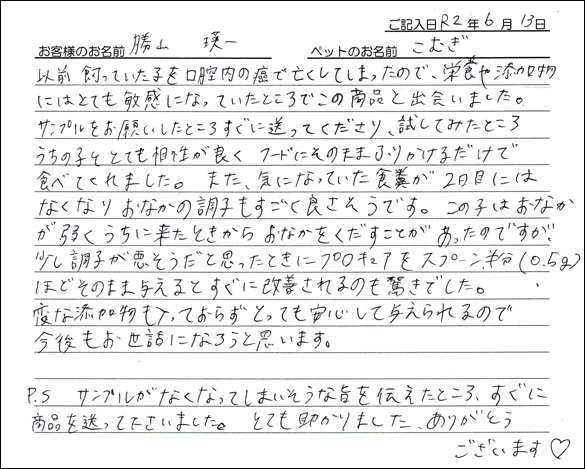 ご記入日 R2 年 6 月 13 日
お客様のお名前 勝山 瑛一 ペットのお名前 こむぎ
以前 飼っていた子を口腔内の癌で亡くしてしまったので、栄養や添加物
にはとても敏感になっていたところでこの商品と出会いました。
サンプルをお願いしたところすぐに送ってくださり、試してみたところ
うちの子もとても相性が良く フードにそのままふりかけるだけで
食べてくれました。また、気になっていた食糞が2日目には
なくなり おなかの調子もすごく良さそうです。この子はおなか
が弱くうちに来たときから おなかをくだすことが あったのですが、
少し調子が悪そうだと思ったときにプロキュアをスプーン半分(0.5g)
ほどそのまま与えるとすぐに改善されるのも驚きでした。
変な添加物も入っておらず とっても安心して与えられるので
今後もお世話になろうと思います。
P.S サンプルがなくなってしまいそうな旨を伝えたところ、すぐに
商品を送って下さいました。とても助かりました、ありがとう
ございます♡